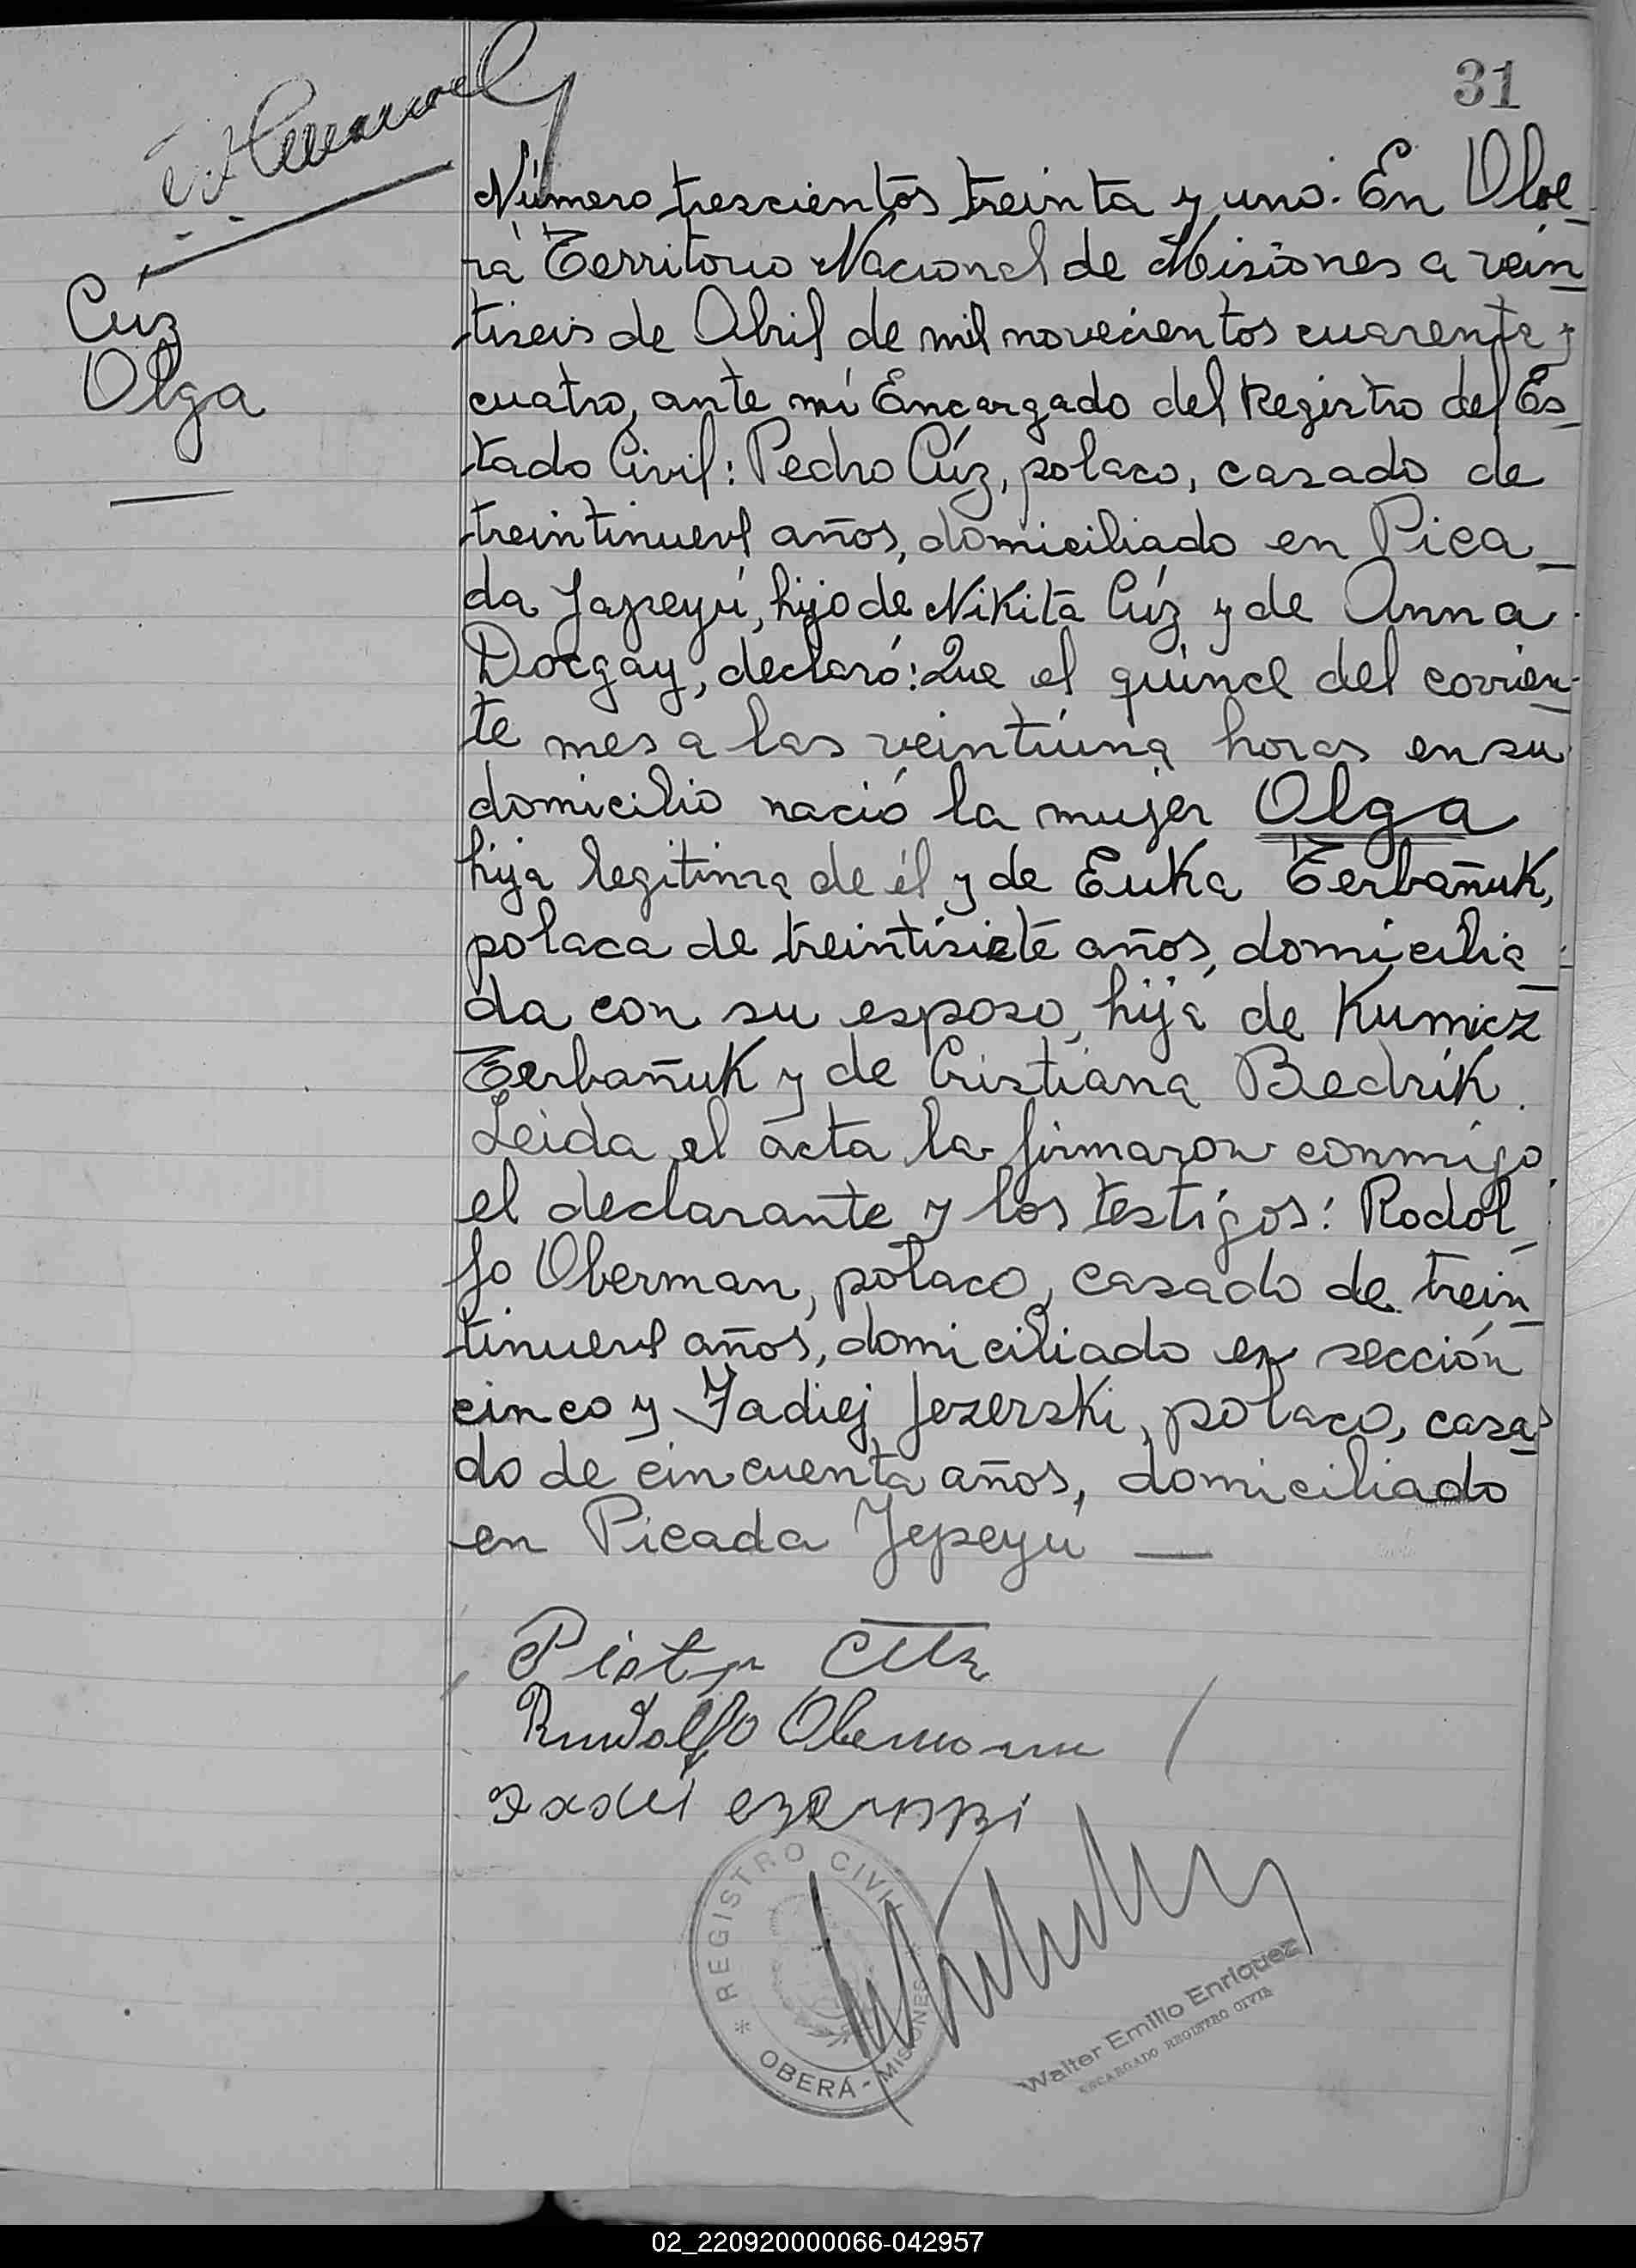 31
Número trescientos treinta y uno. En Obe-
rá Territorio Nacional de Misiones a vein
tiseis de Abril de mil novecientos cuarenta y
cuatro, ante mí Encargado del Registro del Es
tado Civil: Pedro Cúz, polaco, casado de
treintinueve años, domiciliado en Pica
da Yapeyú, hijo de Nikita Cúz y de Anna
Docgay, declaró: Que el quince del corrien-
te mes a las veintiúna horas en su
domicilio nació la mujer Olga
hija legitima de él y de Euka Terbañuk,
polaca de treintisiete años, domicilia
da con su esposo, hija de Kumicz
Terbañuk y de Cristiana Bedrik.
Leida el acta la firmaron conmigo
el declarante y los testigos: Rodol
fo Oberman, polaco, casado de trein
tinueve años, domiciliado en sección
cinco y Tadiej Jezerski, polaco, casa
do de cincuenta años, domiciliado
en Picada Yepeyú —
Cúz
Olga
Piotr Cuz
Rudolfo Obermann
REGISTRO CIVIL
* OBERÁ - MISIONES
Walter Emilio Enriquez
ENCARGADO REGISTRO CIVIL
02_220920000066-042957